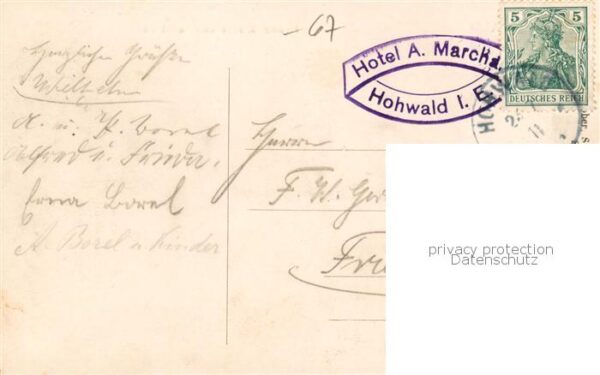 67
Herzliche Grüße
Wilhelm
A. u. H. Borel
Alfred u. Frieda.
Erna Borel
A. Borel u Kinder
Hotel A. Marcha
Hohwald I. E
5 5
DEUTSCHES REICH
HOHWALD
Herrn
F. W.
privacy protection
Datenschutz